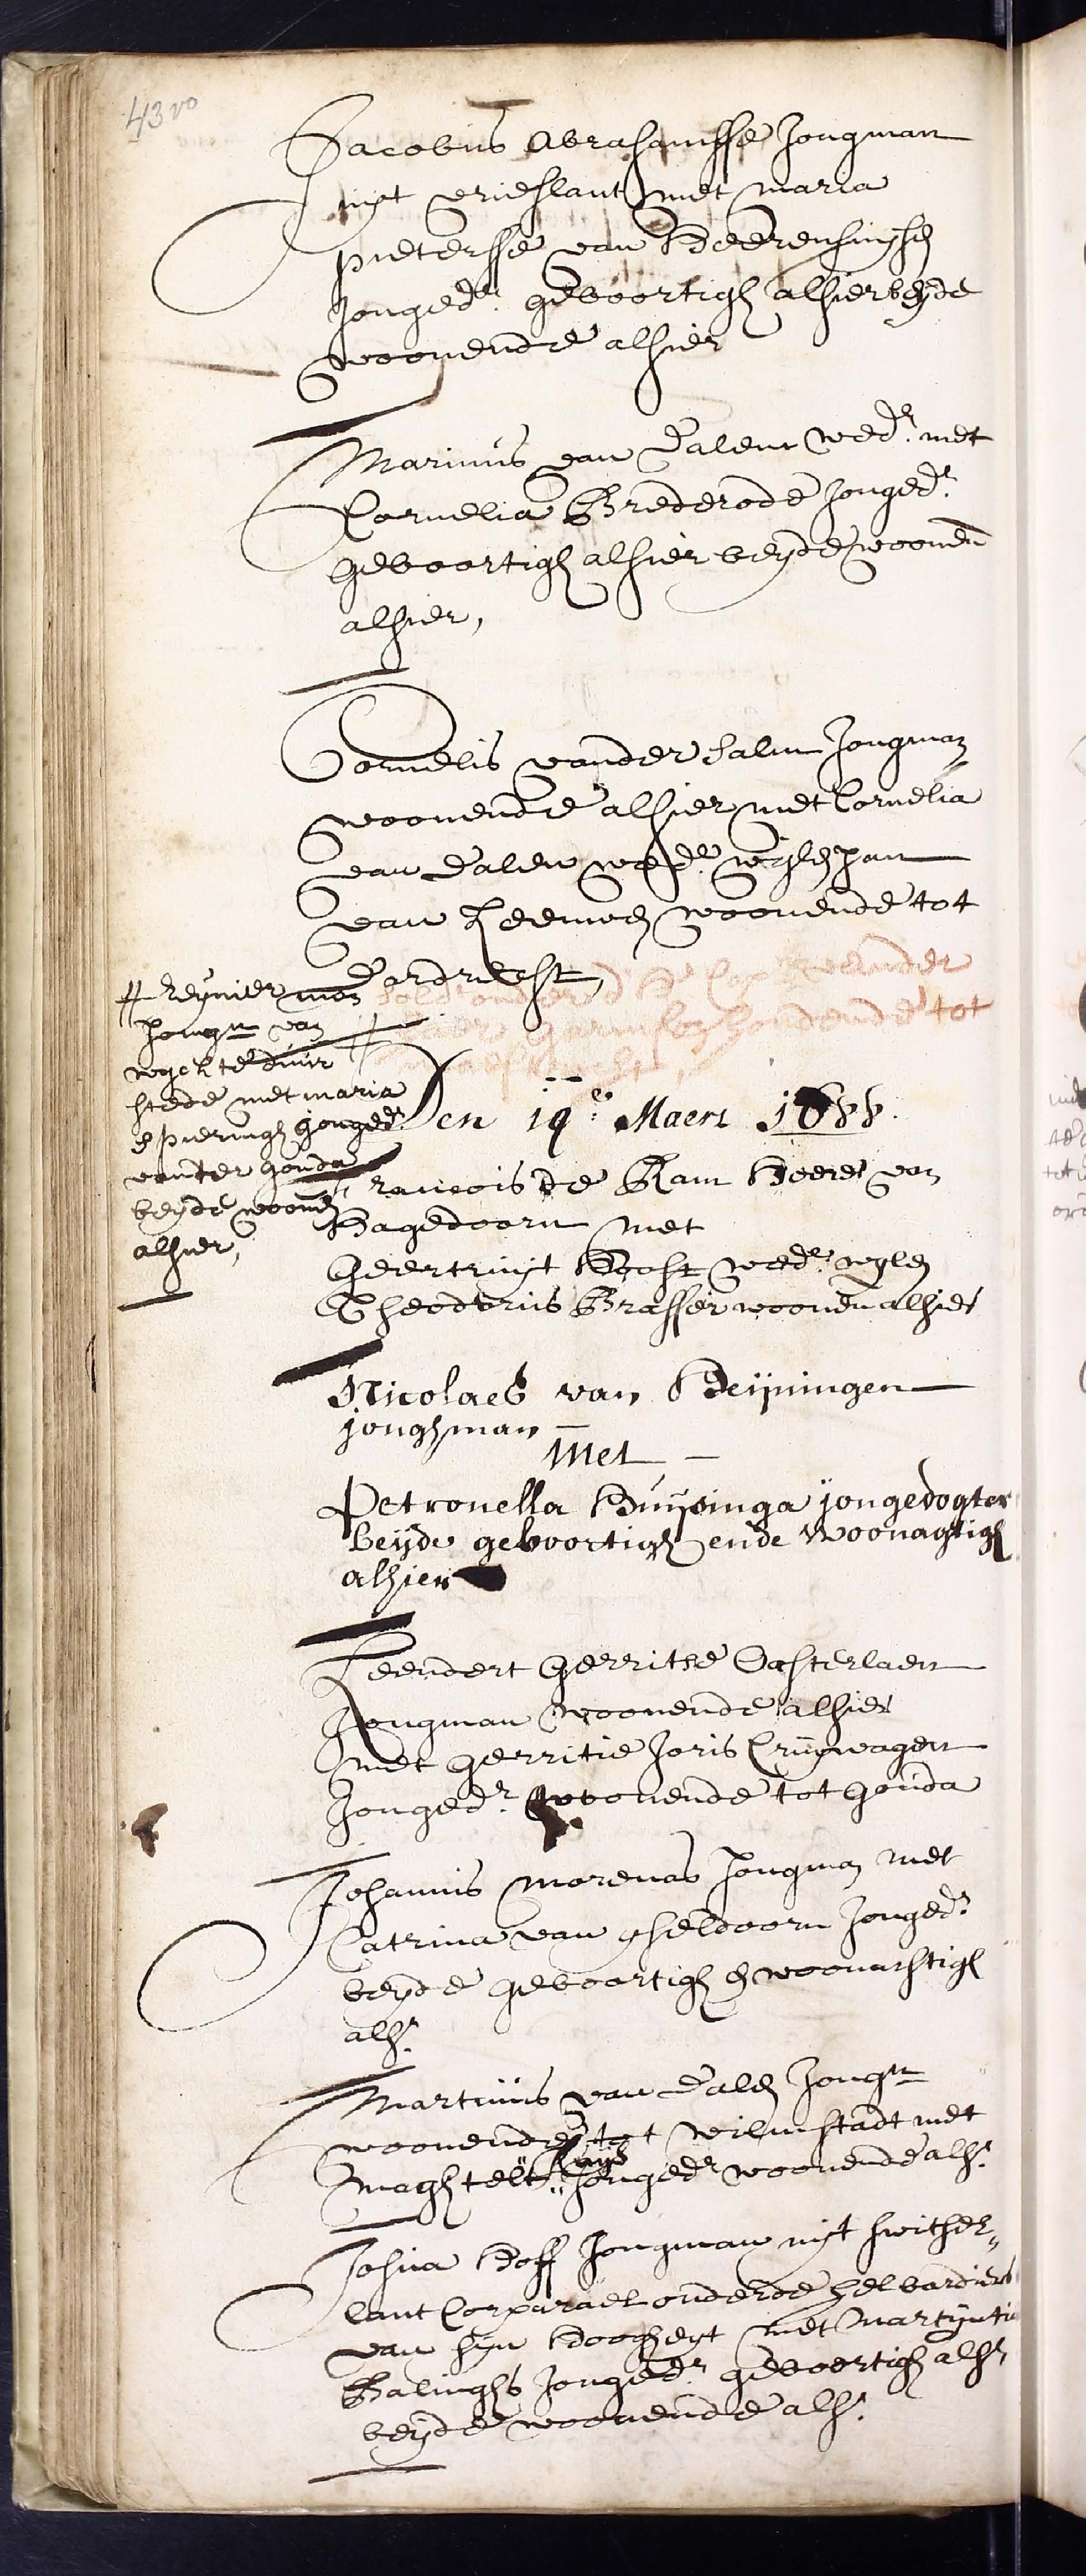 43 vo
Jacobus Abrahamsse Jongman
uijt vrieslant met maria
pieterse van Heerensuijsen
Jonged.r geboortigh alhier beyde
woonende alhier
Marinus van Dalem wed.r met
Cornelia Brederode Jonged.r
geboortigh alhier beyde woonen
alhier,
Cornelis vander halm Jongman
woonende alhier met Cornelia
van dalen wed.e wijlen Jan
van Leeuwen woonende tot
dordrecht,
# Reijnier
Jongm van
wyck te duur
stede met maria
spieringh Jonged.r
vanter gouda
beyde woonen
alhier,
Den 19.e Maert 1688.
francois de Ram Heere van
Hagedoorn met
Geertruijt Hooft wed.e wylen
Theodorus Brasser woonen alhier
Nicolaes van Heijningen
jonghman
Met
Petronella Huijsinga jongedogter
beijde geboortigh ende woonagtigh
alhier
Leendert Gerritse Oosterlaen
Jongman woonende alhier
met Gerritie Joris Cruywagen
Jonged.r woonende tot Gouda
Johannis morenas Jongman met
Catrina van gheldoorn Jonged.r
beyde geboortigh en woonachtigh
alh.r
Martinus van dalen Jongm
woonende tot wilmstadt met
maghtelt Buijs Jonged.r woonende alh.r
Josua Hoff Jongman uijt switser„
lant Corparael onder de helbardiers
van sijn Hoogheyt met Martijntie
Balinghs Jonged.r geboortigh alh.r
beyde woonende alh.r